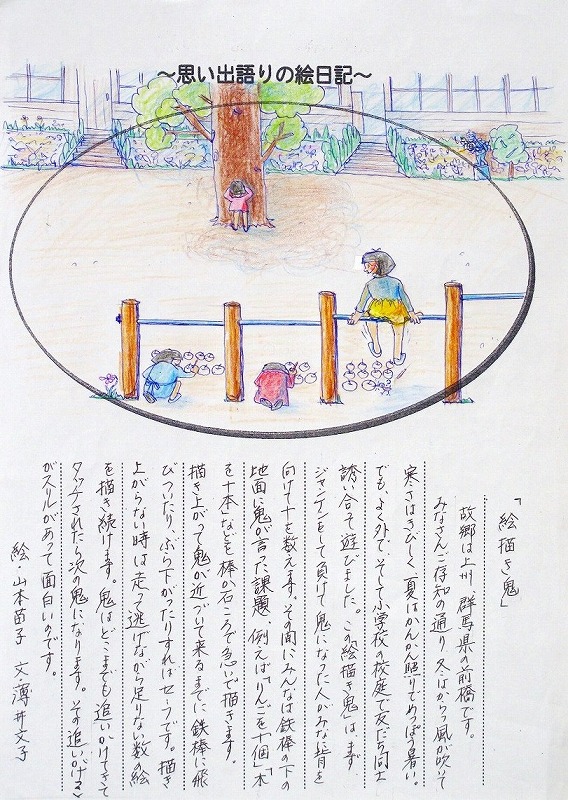 ～思い出語りの絵日記～
「絵描き鬼」
故郷は上州 群馬県の前橋です。
みなさんご存知の通り 冬はからっ風が吹いて
寒さはきびしく、夏はかんかん照りでめっぽう暑い。
でも、よく外で、そして小学校の校庭で友だち同士
誘い合って遊びました。この「絵描き鬼」は、まず
ジャンケンをして負けて鬼になった人がみなに背を
向けて十を数えます。その間にみんなは鉄棒の下の
地面に鬼が言った課題、例えば「りんごを十個」「木
を十本」などを棒か石ころで急いで描きます。
描き上がって鬼が近づいて来るまでに鉄棒に飛
びついたり、ぶら下がったりすればセーフです。描き
上がらない時は走って逃げながら足りない数の絵
を描き続けます。鬼はどこまでも追いかけてきて
タッチされたら次の鬼になります。その追いかける
がスリルがあって面白いのです。
絵 山本苗子 文 薄井文子